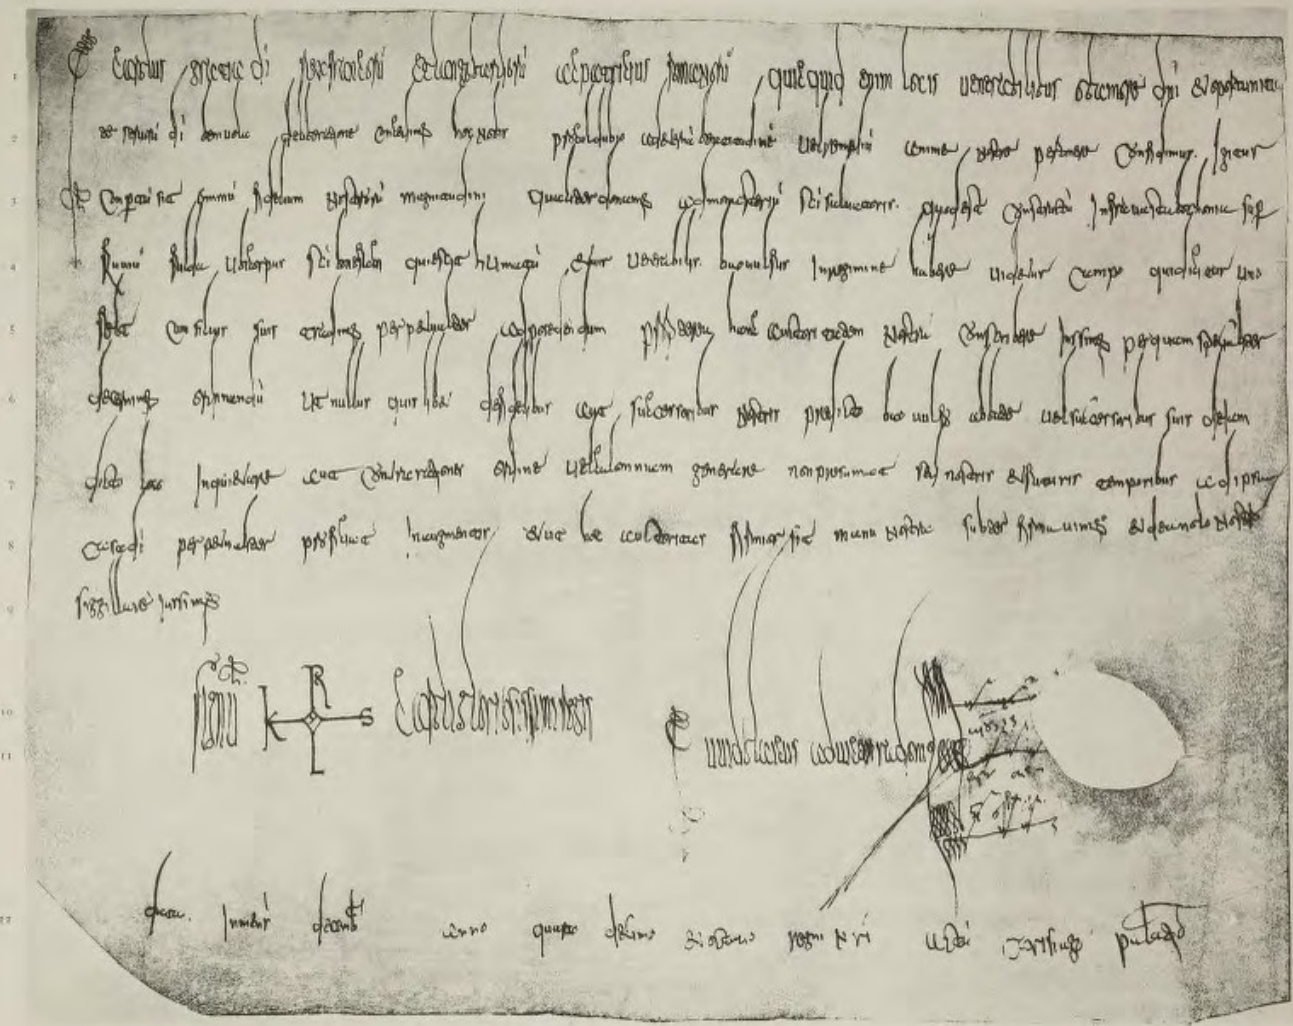 Carolus gratia di rex francorū et langobardorū ac patricius romanorū quicquid enim locis uenerabilibus ob amore dni et oportunita
te seruorū di beniuola deliberatione concedimus hoc nobis procul dubio ad aeternā beatitudinē uel remediū animae nostrae pertinere confidimus. Igitur
conpertū sit omniū fidelium nostrorū magnitudini qualiter donamus ad monasteriū sci saluatoris quod est constructū infra uasta bochonia sup
fluuiū fulda ubi corpus sci bonefatii quiescit humatū et uir uenerabilis baouulfus in regimine habere uidetur campo qui dicitur uno
felt cum siluis suis tradimus perpetualiter ad possidendum propterea hanc auctoritatem nostrā conscribere iussimus per quam specialiter
ut nullus quislibet de fidelibus aut successoribus nostris predicto baouulfo abbate uel successoribus suis de iam
dicto loco inquietare aut uel calumniam generare non presumat sed nostris et futuris temporibus ad ipsam
casa di perpetualiter proficiat in augmentis et ut haec auctoritas firmior sit manu nostra subter firmauimus et de anulo nostro
sigillare iussimus
Signū KRLS Caroli gloriosissimi regis
ad uicem radoni
data in mense decemb anno quarto decimo et octauo regni nri actū carisiago palatio